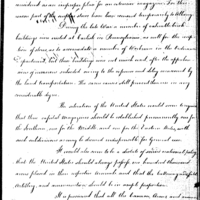 rendered it an imperfect place for an extensive magazine. For this
some part of the supplies have been moved temporarily to Albany.
During the late War a number of valuable brick
buildings were rented at Carlisle in Pennsylvania, as well for the reception
of stores, as to accommodate a number of Workmen in the Ordnance
Department. But these buildings were not much used after the
of inconvenience and delay occasioned by
the land transportation. The same causes still prevent their use in any
considerable degree.
The situation of the United States would seem to require
that three capital Magazines should be established permanently, one for
the Southern, one for the Middle and one for the Eastern States, with
such subdivisions as may be deemed indispensible for General use.
It would also seem to be a dictate of sound national policy
that the United States should always possess one hundred thousand
arms placed in their respective Arsenals and that the battering and field
Artillery, and ammunition should be in ample proportion.
It is presumed that all the Cannon, Arms and